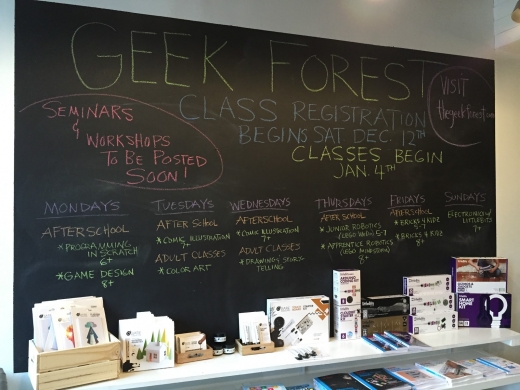 GEEK FOREST
VISIT
thegeekforest.com
CLASS REGISTRATION
BEGINS SAT DEC. 12TH
CLASSES BEGIN
JAN. 4TH
SEMINARS
&
WORKSHOPS
TO BE POSTED
SOON!
MONDAYS
AFTERSCHOOL
*PROGRAMMING
IN SCRATCH
6+
*GAME DESIGN
8+
TUESDAYS
AFTER SCHOOL
*COMIC ILLUSTRATION
ADULT CLASSES
*COLOR ART
WEDNESDAYS
AFTERSCHOOL
*COMIC ILLUSTRATION
7+
ADULT CLASSES
*DRAWING & STORY-
TELLING
THURSDAYS
AFTER SCHOOL
*JUNIOR ROBOTICS
(LEGO WEDO) 5-7
*APPRENTICE ROBOTICS
(LEGO MINDSTORM)
8+
FRIDAYS
AFTERSCHOOL
*BRICKS 4 KIDZ
5-7
*BRICKS 4 KIDZ
8+
SUNDAYS
ELECTRONICS W/
LITTLEBITS
7+
SMART HOME KIT